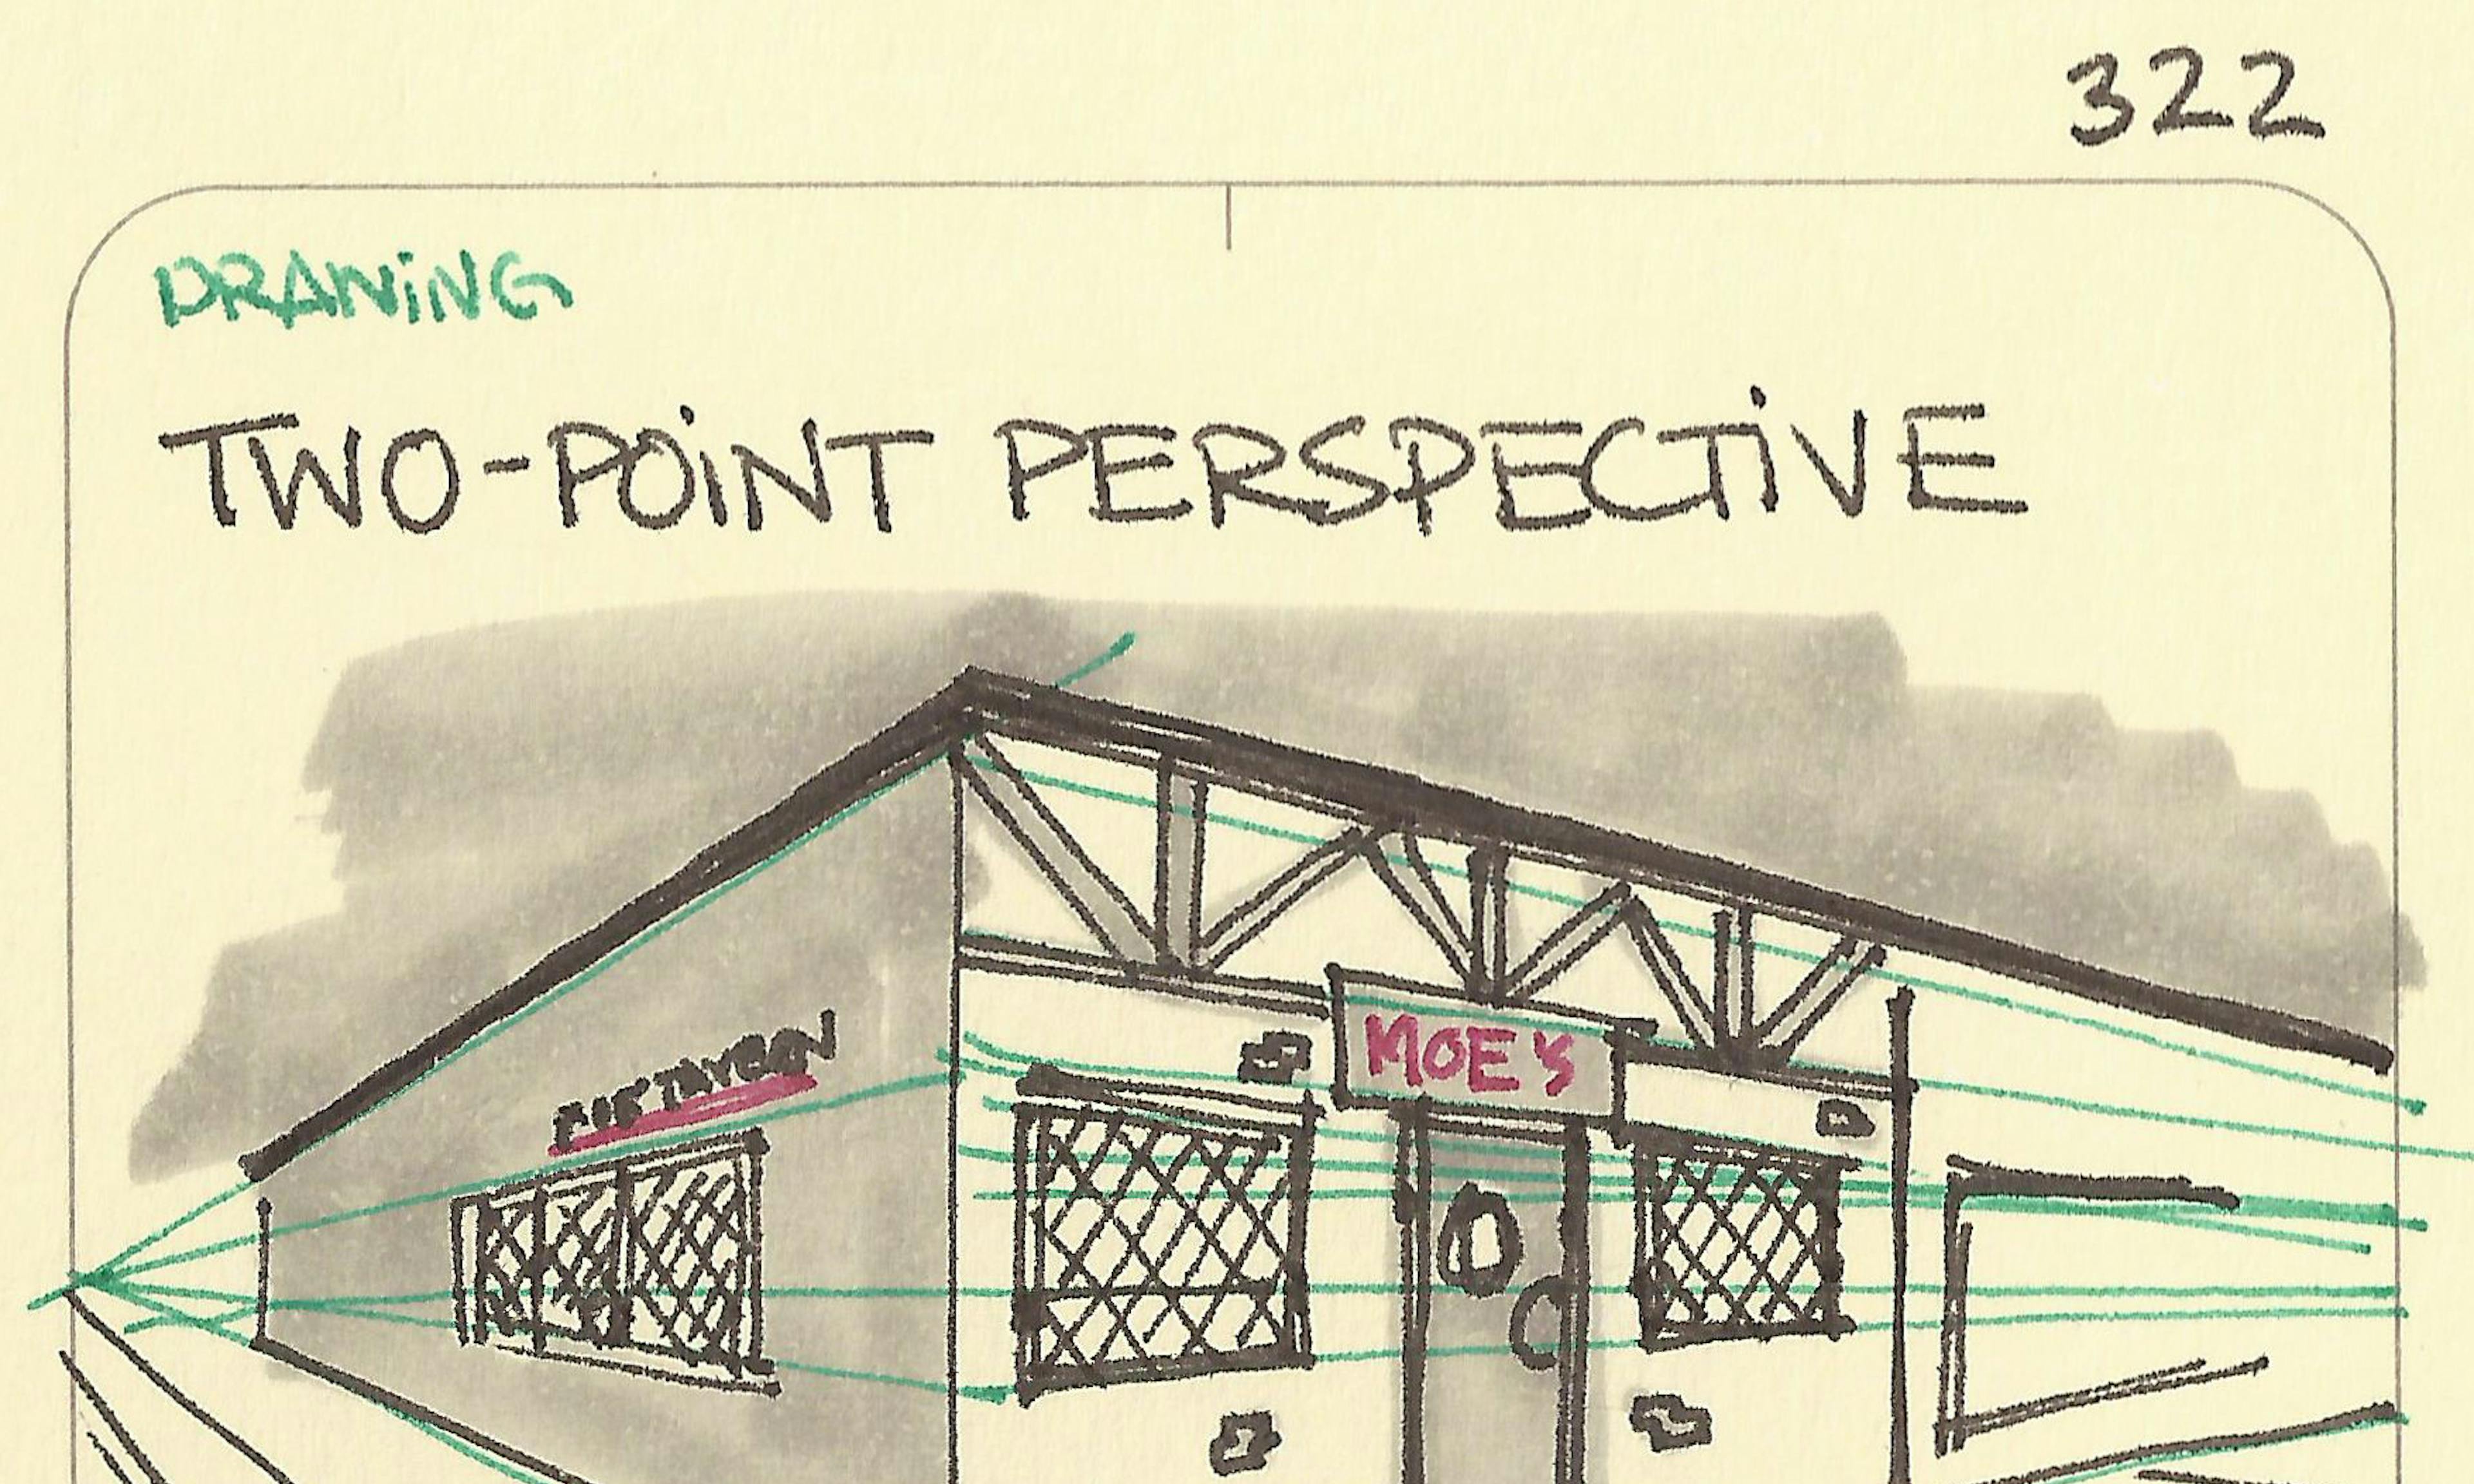 322
DRAWiNG
TWO-POiNT PERSPECTiVE
MOE'S
TAVERN